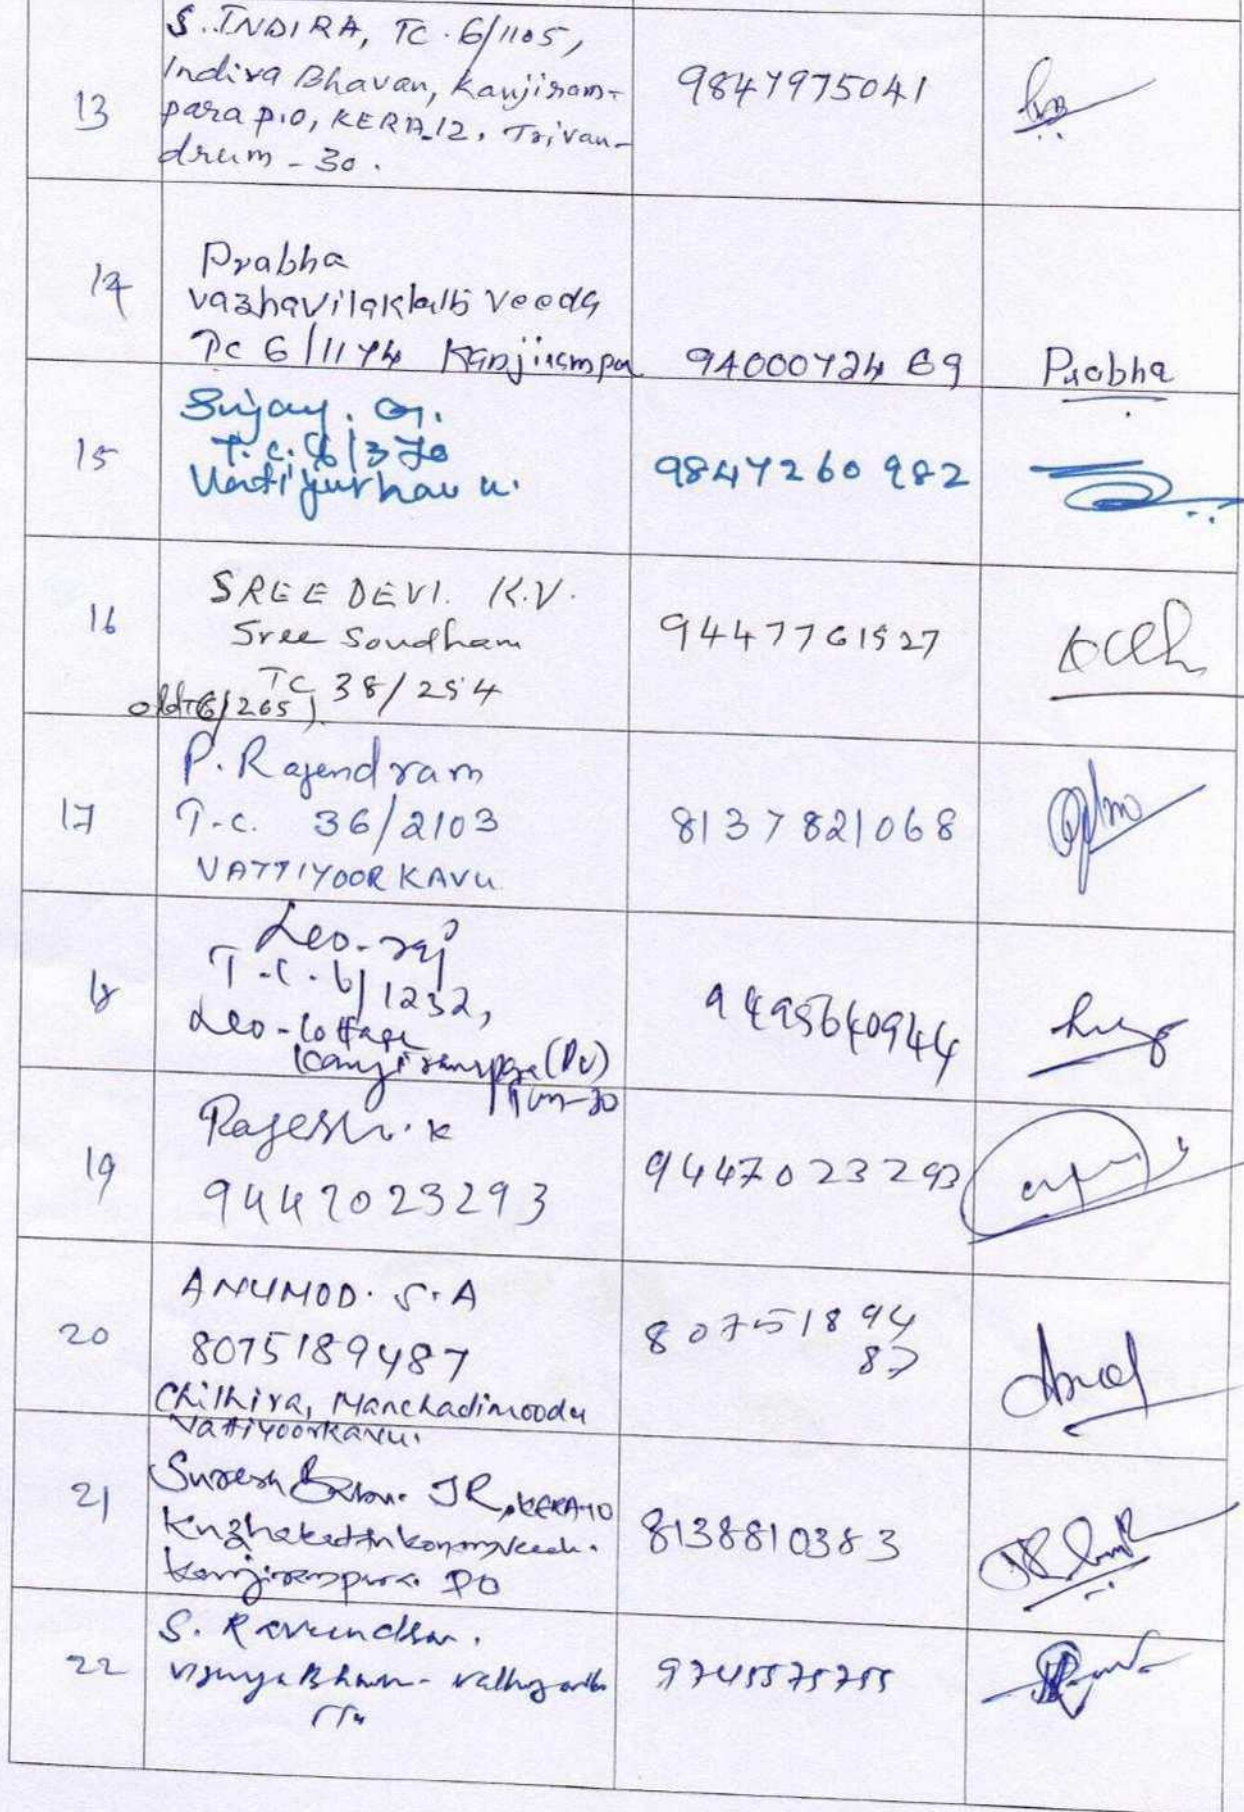 13
S. INDIRA, TC. 6/1105,
Indira Bhavan, Kanjiram-
para P.O, KERA-12, Trivan-
drum - 30.
9847975041
14
Prabha
vazhavilaklathi Veedu
TC 6/1174 Kanjirampa
9400072469
Prabha
15
Sujay. G.
T.C. 6/370
9847260982
16
SREE DEVI. K.V.
Sree Soudham
TC 38/254
old T6/265)
9447761527
17
P. Rajendram
T.C. 36/2103
VATTIYOORKAVU
8137821068
18
Leo-raj
T.C. 6/1232,
Leo-Cottage
(PO)
Tvm-30
9495640944
19
Rajesh.K
9447023293
9447023293
20
ANUMOD. S.A
8075189487
Chilhira, Manchadimoodu
Vattiyoorkavu.
80751894
87
21
Suresh Babu. JR, KERA-10
Kanjirampara PO
8138810383
22
S. Raveendran.
9745575755